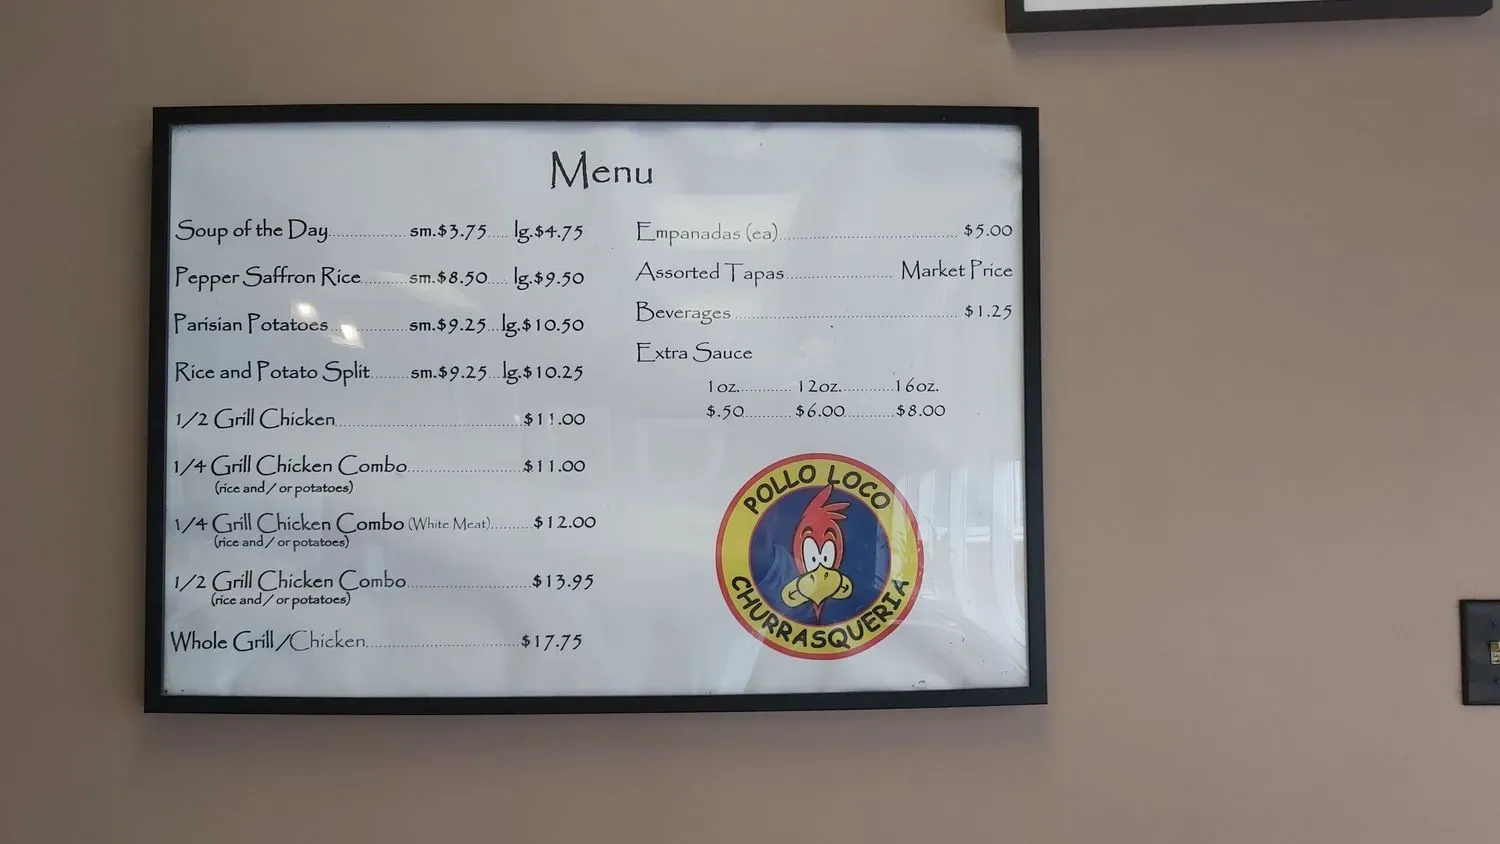 Menu
Soup of the Day.................sm.$3.75.....lg.$4.75
Pepper Saffron Rice..........sm.$8.50.....lg.$9.50
Parisian Potatoes.................sm.$9.25...lg.$10.50
Rice and Potato Split........sm.$9.25...lg.$10.25
1/2 Grill Chicken..........................................$11.00
1/4 Grill Chicken Combo.........................$11.00
(rice and/or potatoes)
1/4 Grill Chicken Combo (White Meat).........$12.00
(rice and/or potatoes)
1/2 Grill Chicken Combo...........................$13.95
(rice and/or potatoes)
Whole Grill/Chicken..................................$17.75
Empanadas (ea)........................................$5.00
Assorted Tapas........................Market Price
Beverages..................................................$1.25
Extra Sauce
1oz............12oz............16oz.
$.50...........$6.00...........$8.00
POLLO LOCO
CHURRASQUERIA